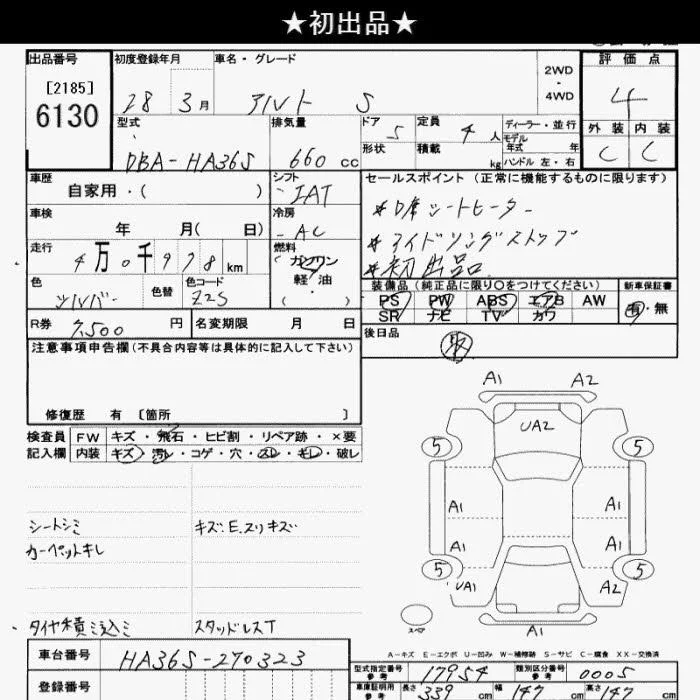 ★初出品★
出品番号
[2185]
6130
初度登録年月
28 3月
車名・グレード
アルト S
2WD
・
4WD
評価点
4
外装 内装
C C
型式
DBA-HA36S
排気量
660 cc
ドア
5
形状
定員
4 人
積載
kg
ディーラー・並行
モデル
年式 年
ハンドル 左・右
車歴
自家用・( )
シフト
IAT
セールスポイント(正常に機能するものに限ります)
*D席シートヒーター
*アイドリングストップ
*初出品
車検
年 月( 日)
冷房
AC
走行
4万0千978km
燃料
ガソリン
軽・油
( )
色
シルバー
色替
色コード
Z2S
装備品(純正品に限り○をつけてください)
PS PW ABS エアB AW
SR ナビ TV カワ
新車保証書
有・無
R券
7,500 円
名変期限 月 日
後日品
取
注意事項申告欄(不具合内容等は具体的に記入して下さい)
修復歴 有 〔箇所 〕
検査員
記入欄
FW キズ・飛石・ヒビ割・リペア跡・×要
内装 キズ・汚レ・コゲ・穴・スレ・キレ・破レ
シートシミ
カーペットキレ
キズ、E、スリキズ
タイヤ積ミ込ミ
スタッドレスT
A1 A2
UA2
5 5
A1 A1
A1 A1
5 5
UA1 A2
スペア
A1
A-キズ E-エクボ U-凹み W-補修跡 S-サビ C-腐食 XX-交換済
車台番号
HA36S-270323
登録番号
型式指定番号
参考
17954
類別区分番号
参考
0005
車庫証明用
参考
長さ 339 cm 幅 147 cm 高さ 147 cm